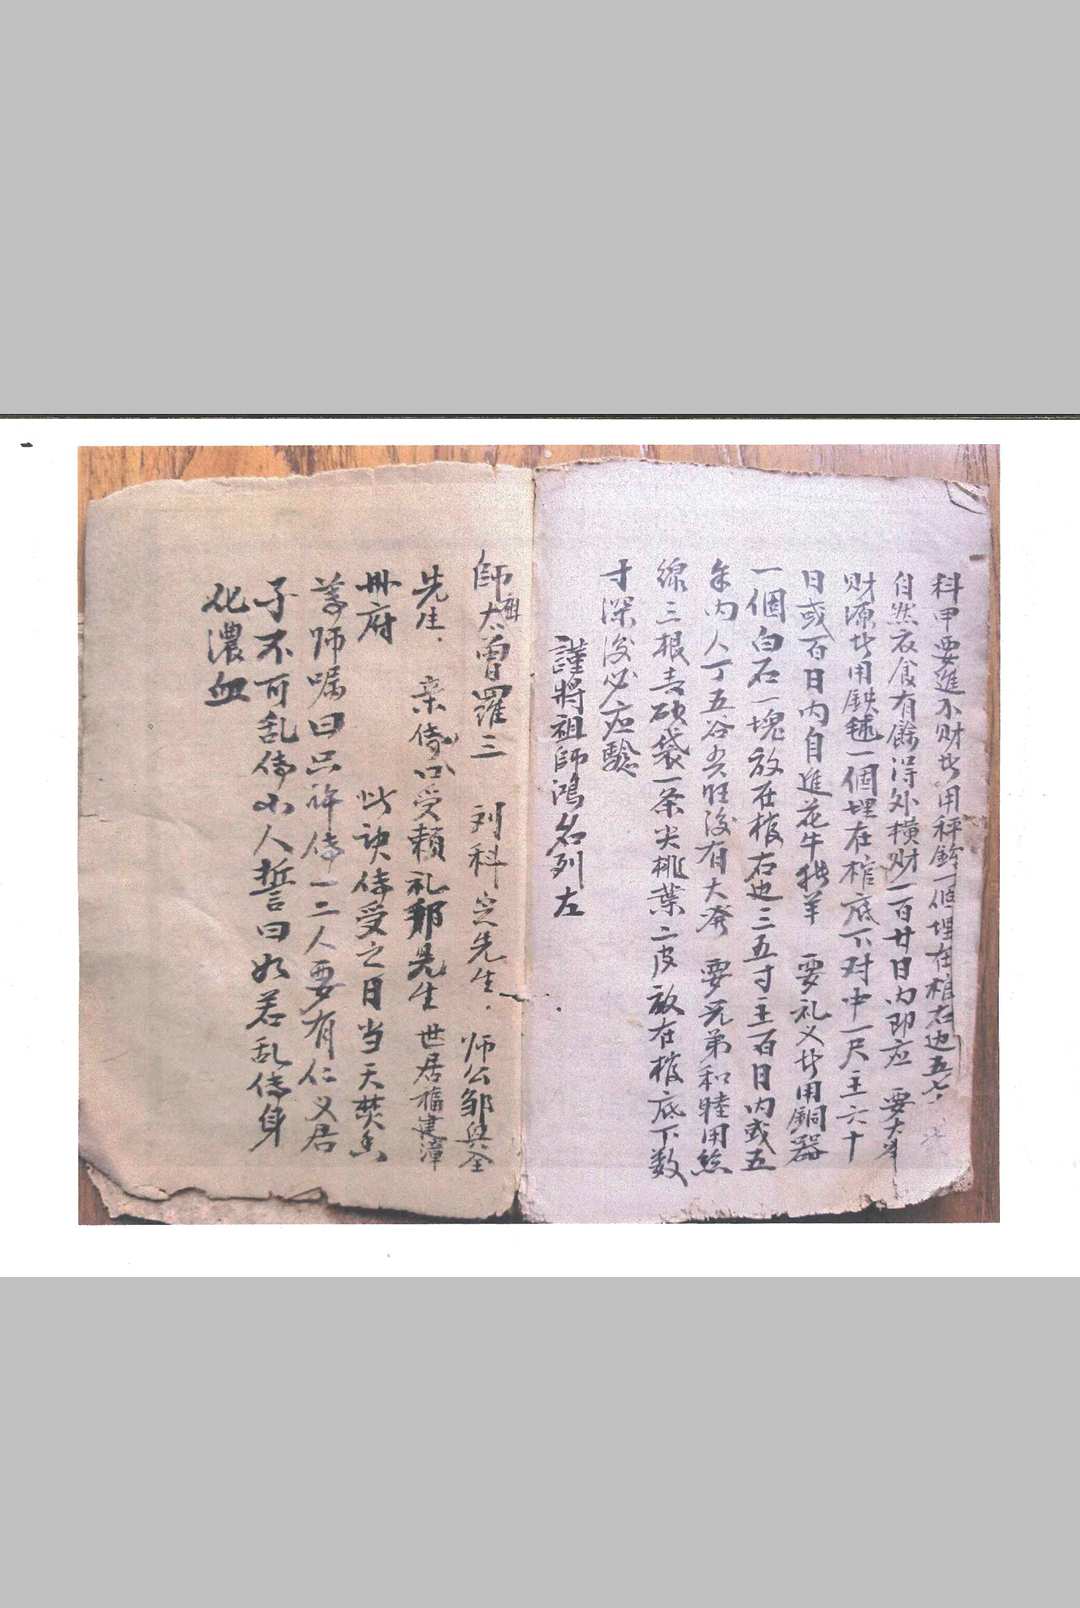 科甲要進小财者用秤錘一個埋在棺右边五七
自然衣食有餘得外横财一百廿日内即应 要大
财源者用鉄毬一個埋在棺底下对中一尺主六十
日或百日内自進花牛 羊 要礼义者用銅器
一個白石一塊放在棺右边三五寸主百日内或五
年内人丁五谷 旺後有大發 要兄弟和睦用絲
線三根 袋一条尖桃葉二皮放在棺底下数
寸深後必应驗
謹將祖師鴻名列左
師太祖曾羅三 刘科 先生． 师公邹興全
先生． 亲傳口受賴礼 先生 世居福建漳
州府 此訣傳受之日当天焚香
蒙师嘱曰只許傳一二人要有仁义君
子不可乱傳小人誓曰如若乱傳身
化濃血